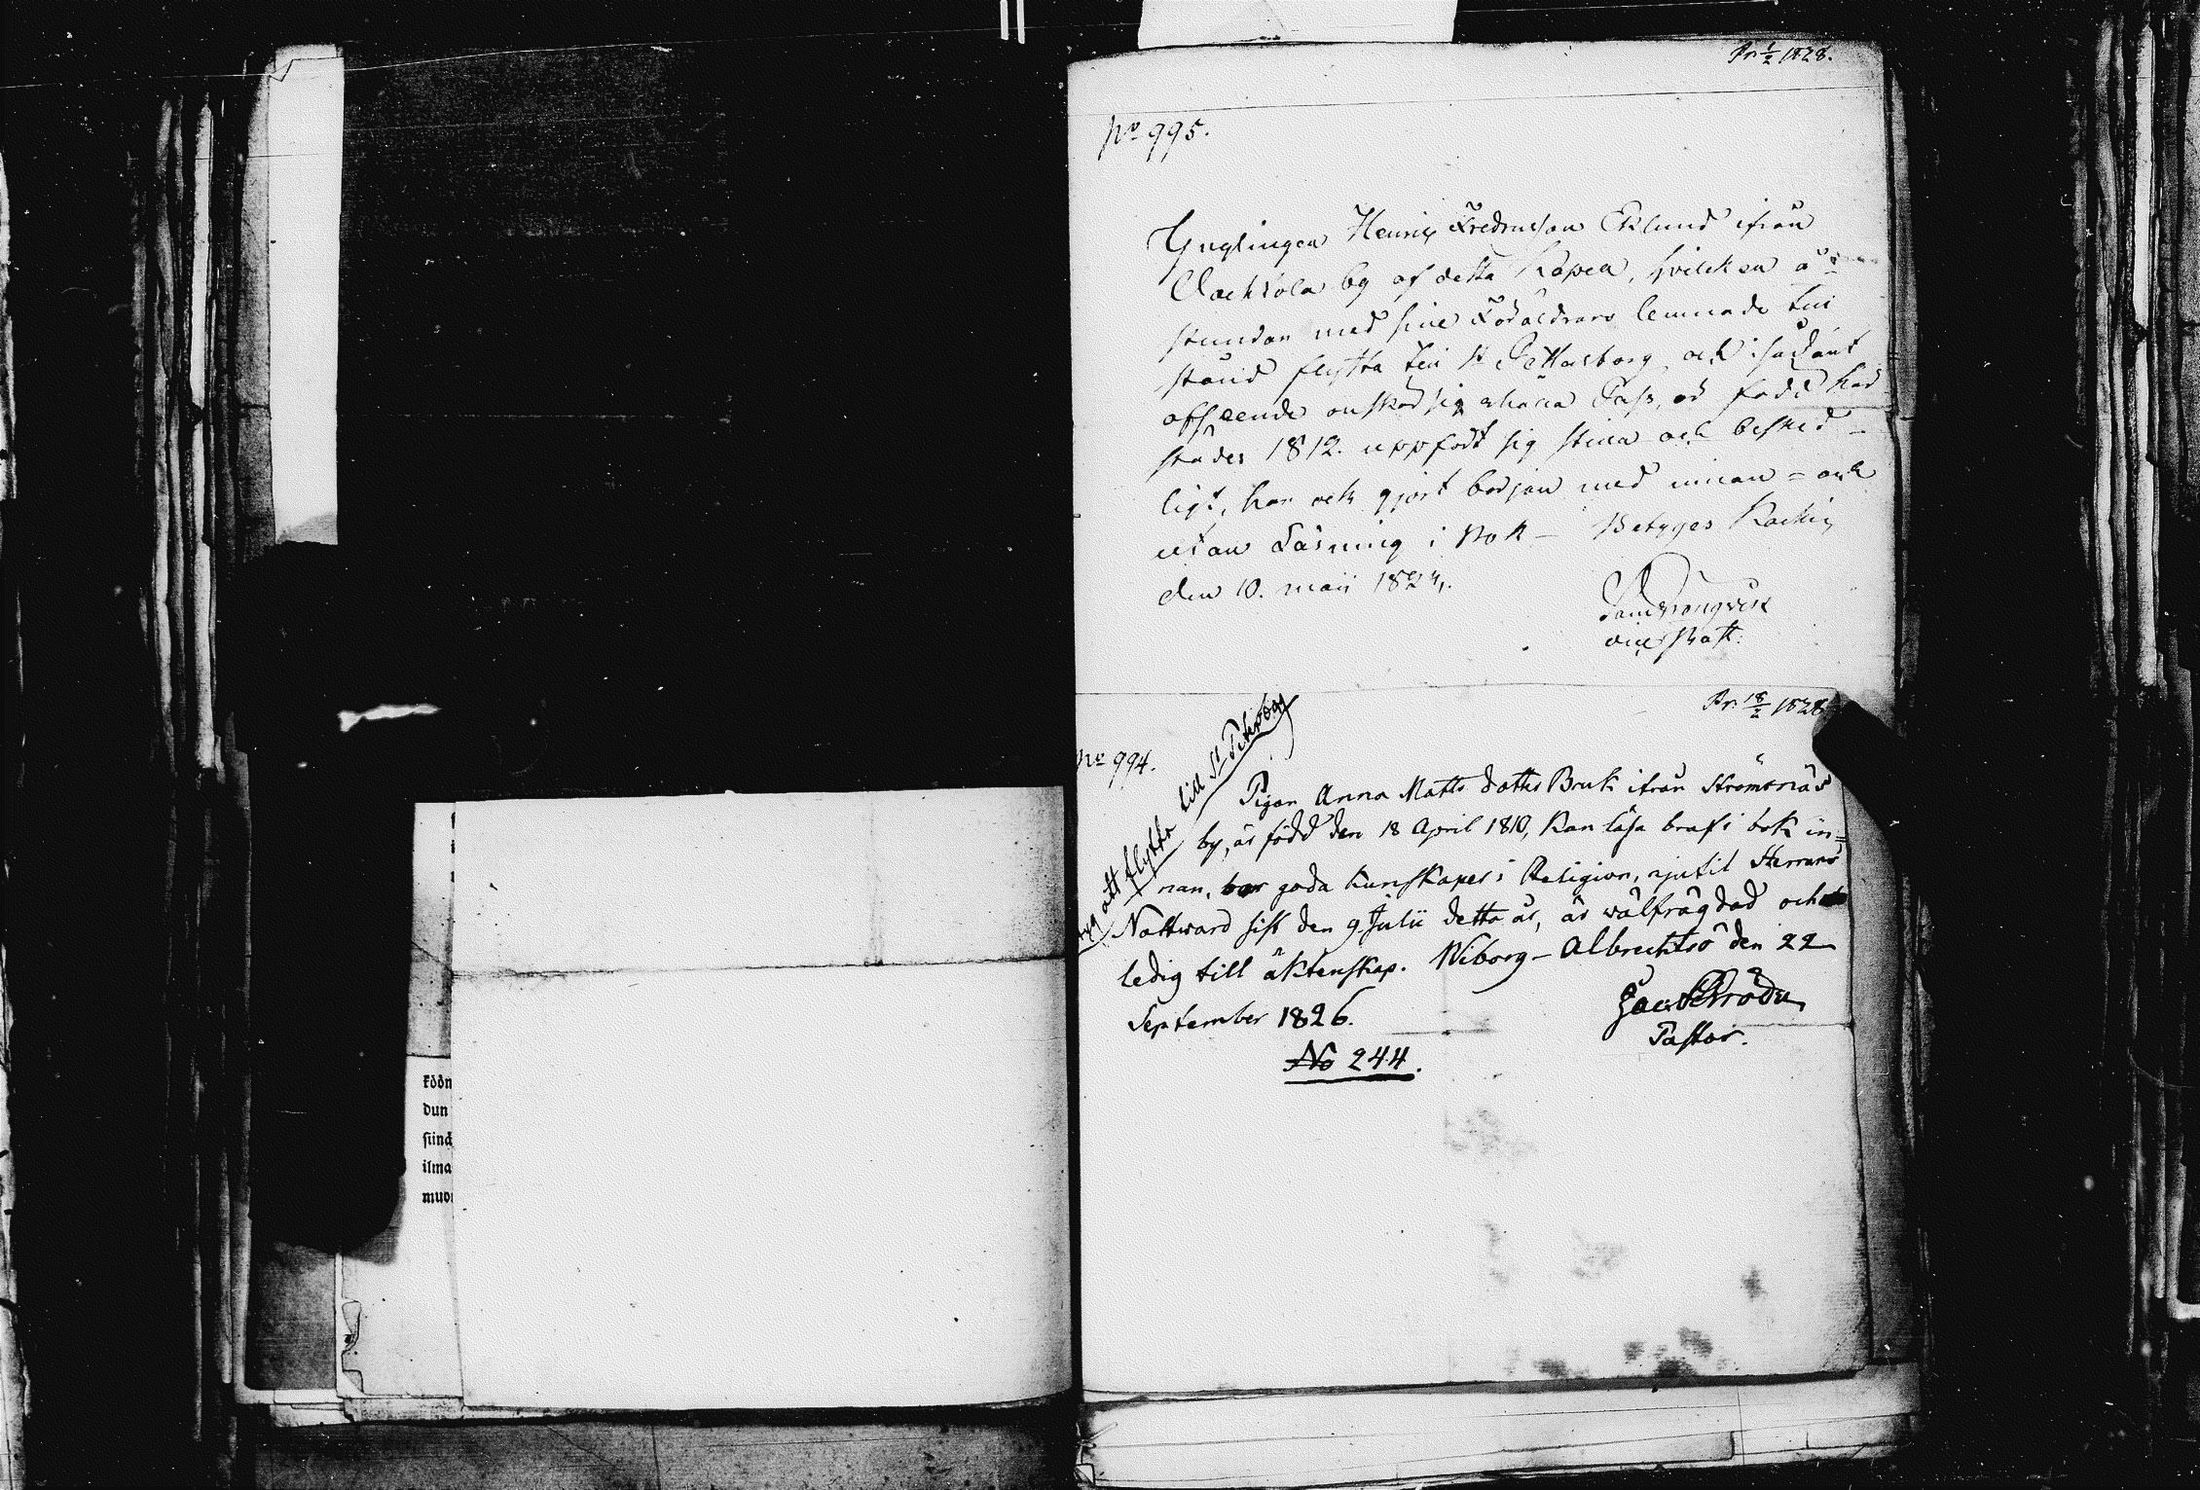 Pr. 1/2 1828.
No 995.
Ynglingen Henric Fredricsson Eklund ifrån
by af detta Capell, hvilcken å-
stundar med sine Föräldrars lemnade till
stånd flytta till St Pettersborg, och i sådant
afseende önskar sig erhålla Pass, är född här
städes 1812. uppfört sig stilla och besked-
ligt, har ock gjort början med innan- och
utan Läsning i Bok – Betygas
den 10. maii 1824.
vice Past:
Pr. 18/2 1828
No 994.
att flytta till St Petersborg
Pigan Anna Matts dotter Bruk ifrån Strömsnäs
by, är född den 18 April 1810, kan läsa braf i bok in=
nan, har goda kunskaper i Religion, njutit Herrans
Nattward sist den 9 Julii detta år, är wälfrägdad och
ledig till äktenskap. Wiborg – Albrechtsö den 22
September 1826.
Pastor.
No 244.
födn
dun
siind
ilma
muor